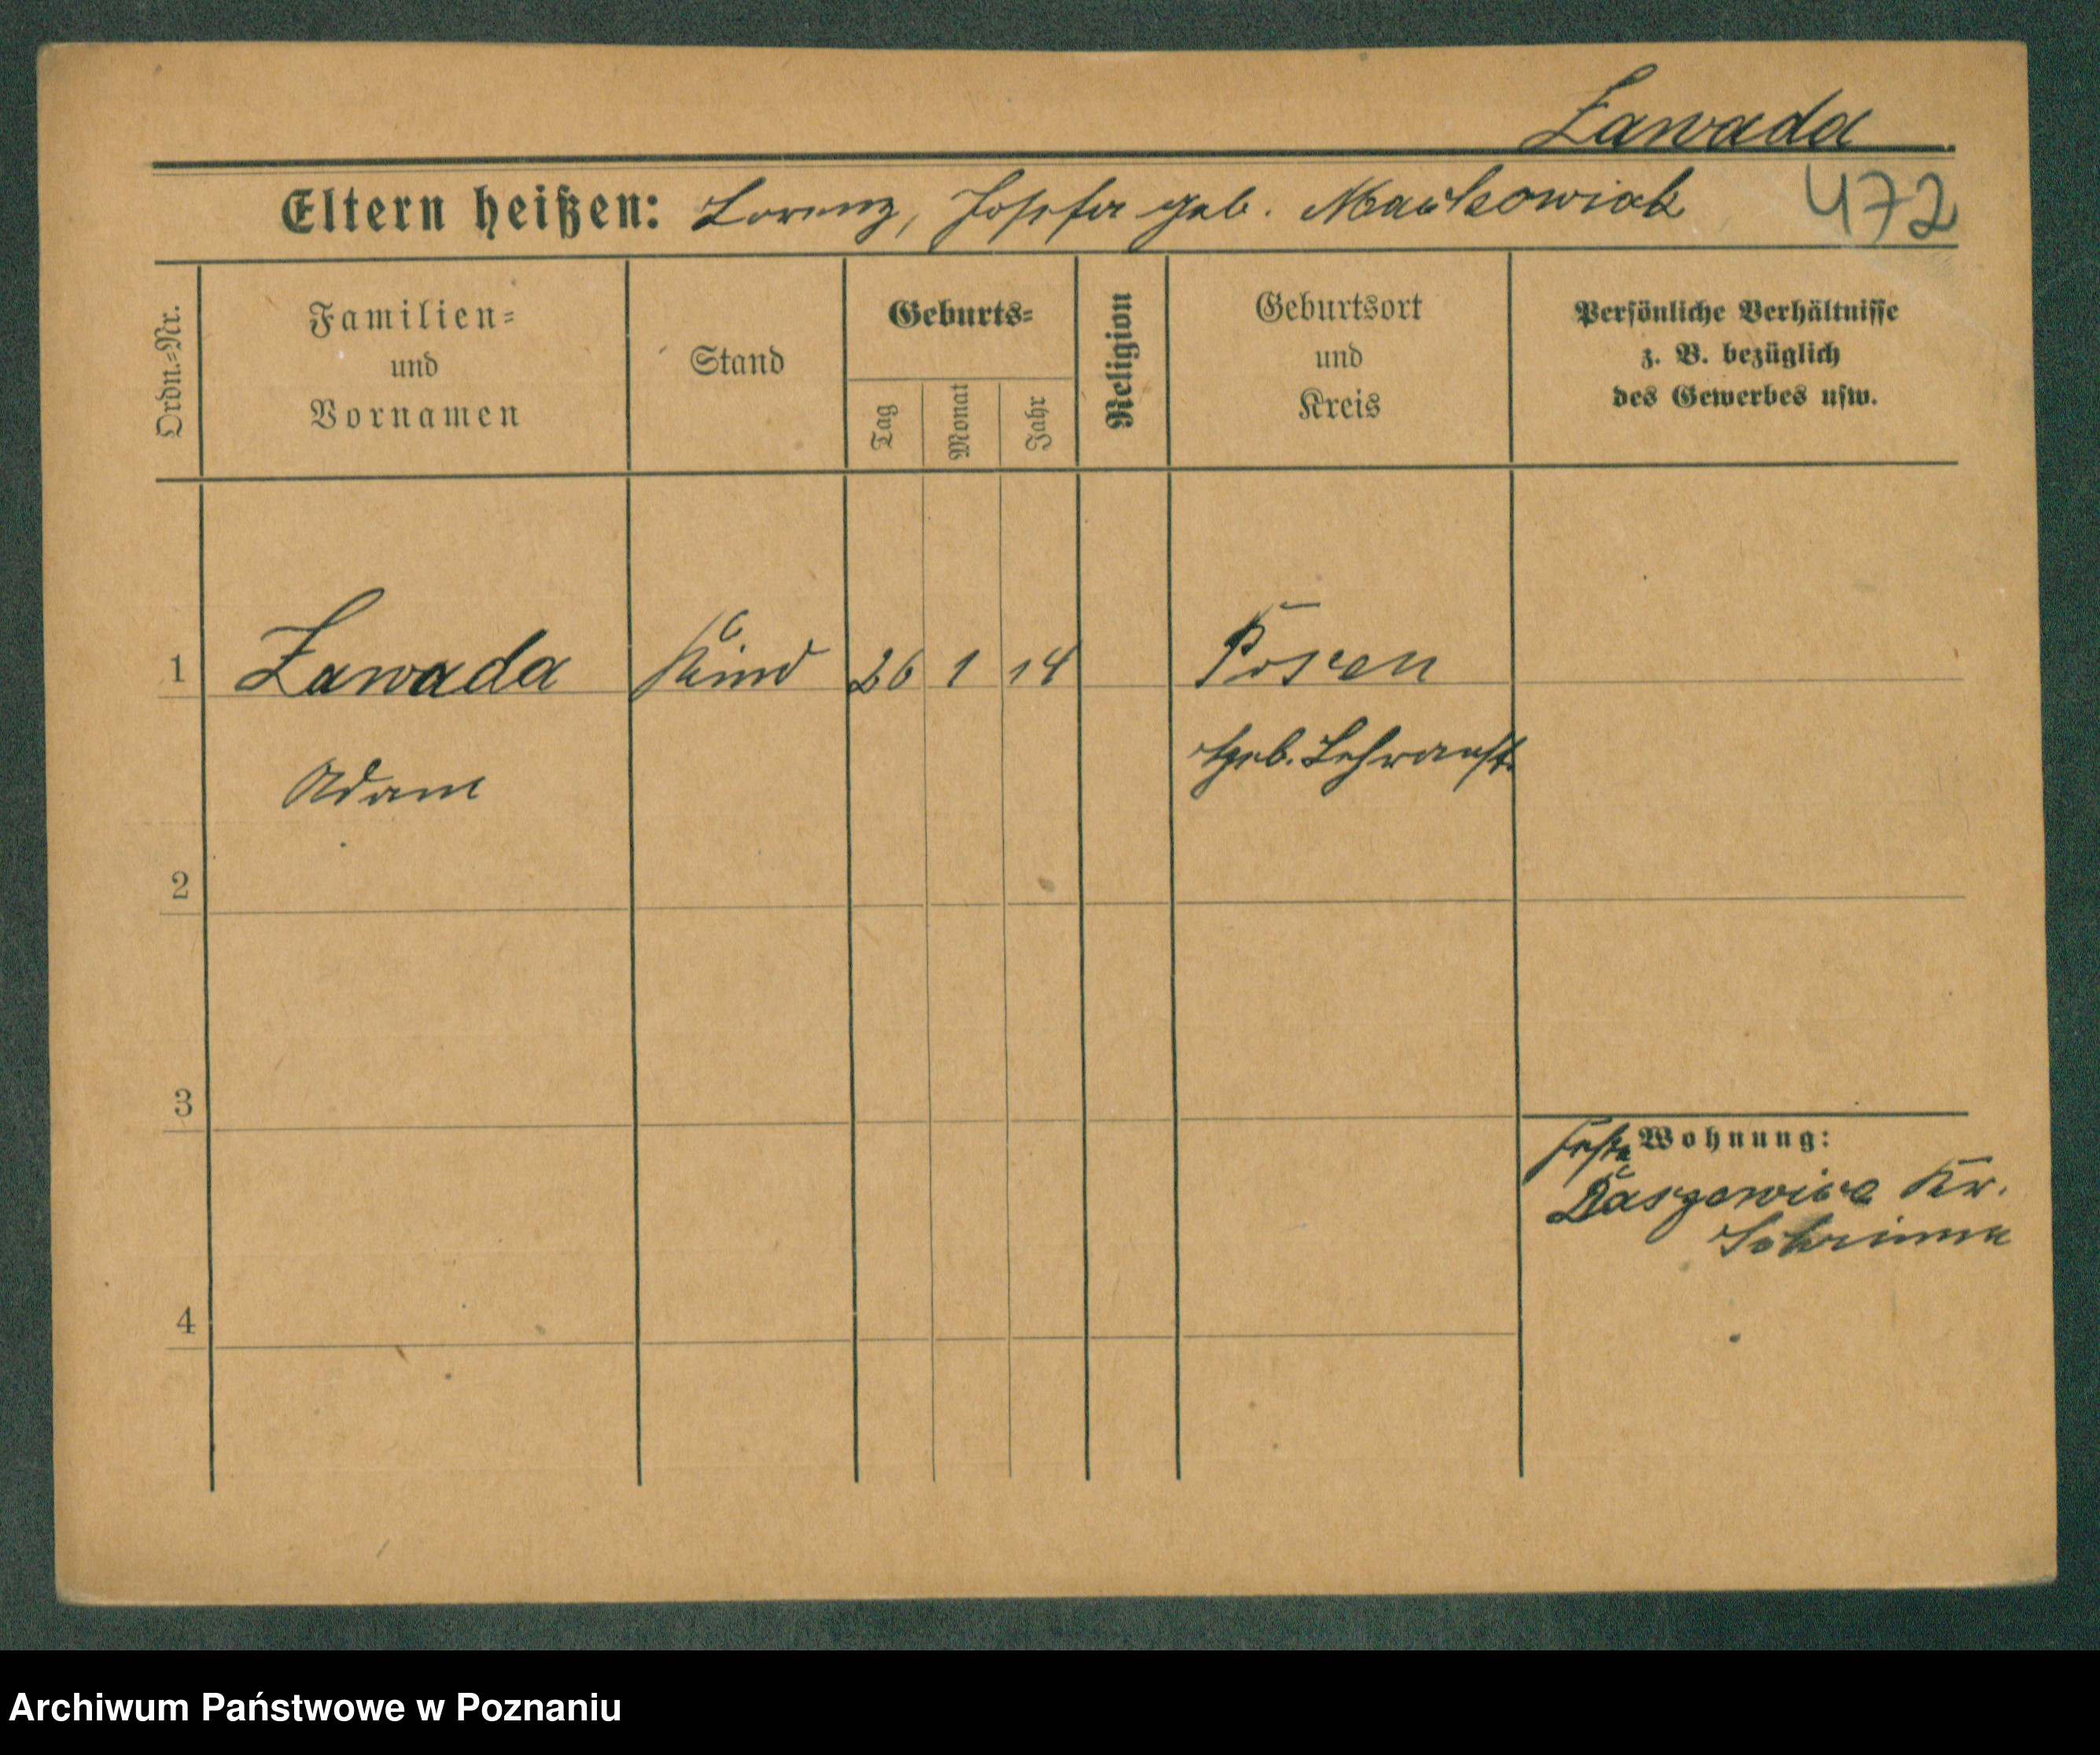 Zawada
Eltern heißen: Lorenz, Josefa geb. Maćkowiak 472
Ordn.=Nr.
Familien=
und
Vornamen
Stand
Geburts=
Tag
Monat
Jahr
Religion
Geburtsort
und
Kreis
Persönliche Verhältnisse
z. B. bezüglich
des Gewerbes usw.
1 Zawada Kind 26 1 14 Posen
Hgeb. Lehranst.
Adam
2
3
Wohnung:
Daszewice Kr.
Schrimm
4
Archiwum Państwowe w Poznaniu